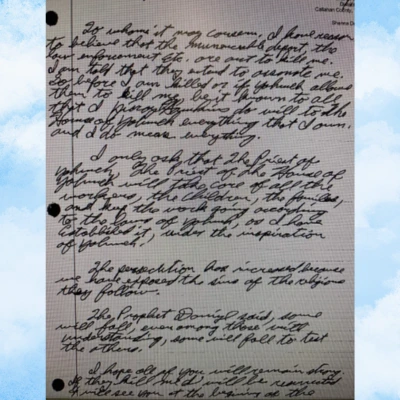 Callahan County,
Shanna D
To whom it may concern, I have reason
to believe that the department, the
law enforcement etc. are out to kill me.
I am told that they intend to me,
so before I am killed or if Yahweh allows
them to kill me, be it known to all
that I Hawkins do will to The
House of Yahweh everything that I own,
and I do mean everything.
I only ask that The Priest of
Yahweh, The Priest of The House of
Yahweh will take care of all the
workers, the children, the families,
and keep the work going according
to the Laws of Yahweh, as I have
established it, under the inspiration
of Yahweh.
The persecution has increased because
we have exposed the sins of the religions
they follow.
The Prophet Daniyl said, some
will fall, even among those with
understanding, some will fall to test
the others.
I hope all of you will remain strong
If they kill me I will be resurrected
I will see you at the begining of the